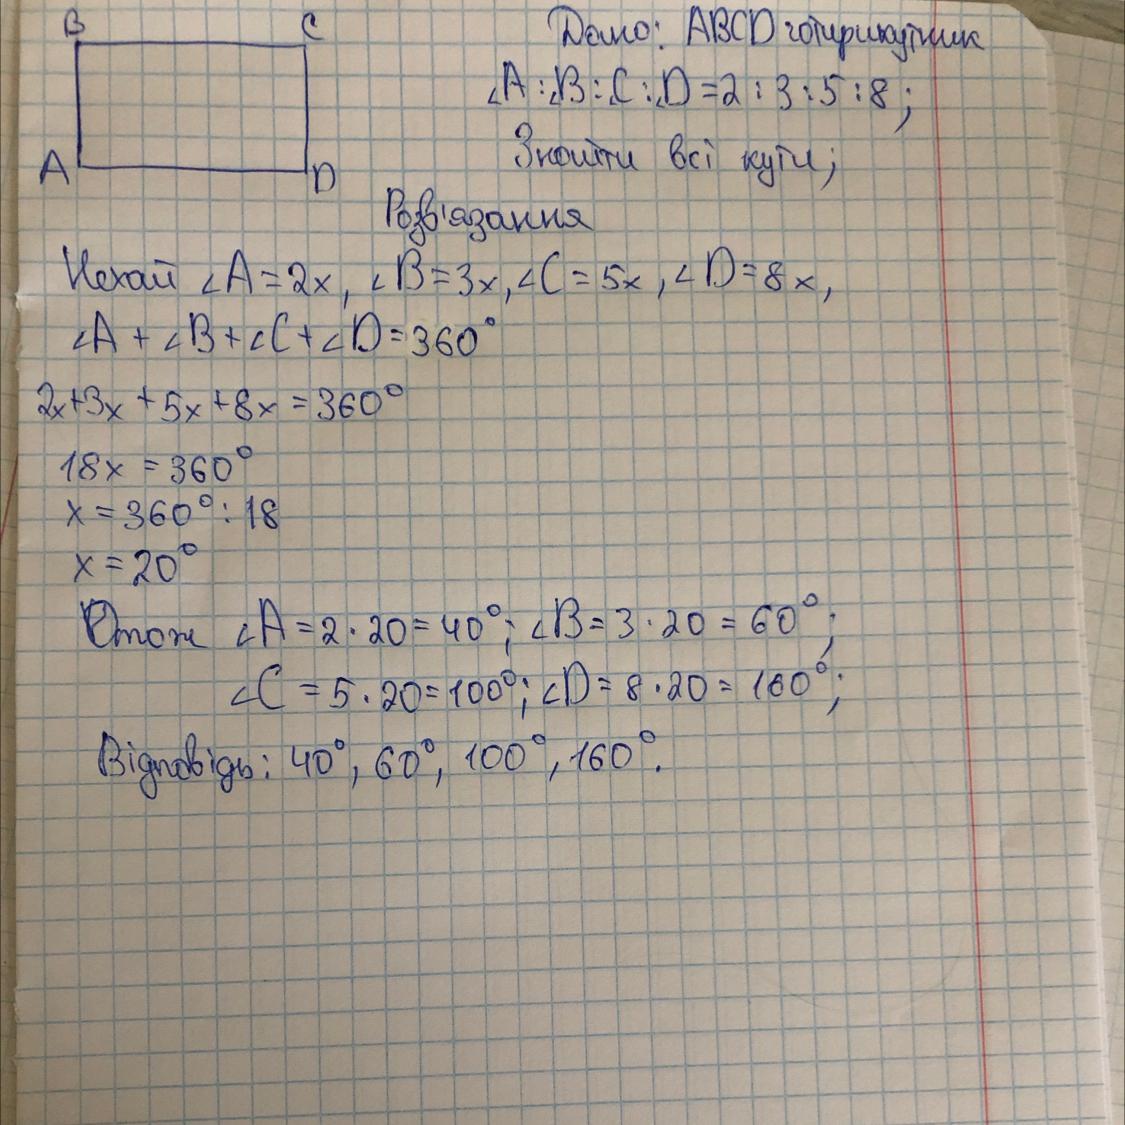 B C
A D
Дано: ABCD чотирикутник
∠A:∠B:∠C:∠D=2:3:5:8;
Знайти всі кути;
Розв'язання
Нехай ∠A=2x, ∠B=3x, ∠C=5x, ∠D=8x,
∠A+∠B+∠C+∠D=360°
2x+3x+5x+8x=360°
18x=360°
x=360°:18
x=20°
Отож ∠A=2·20=40°; ∠B=3·20=60°;
∠C=5·20=100°; ∠D=8·20=160°;
Відповідь: 40°, 60°, 100°, 160°.